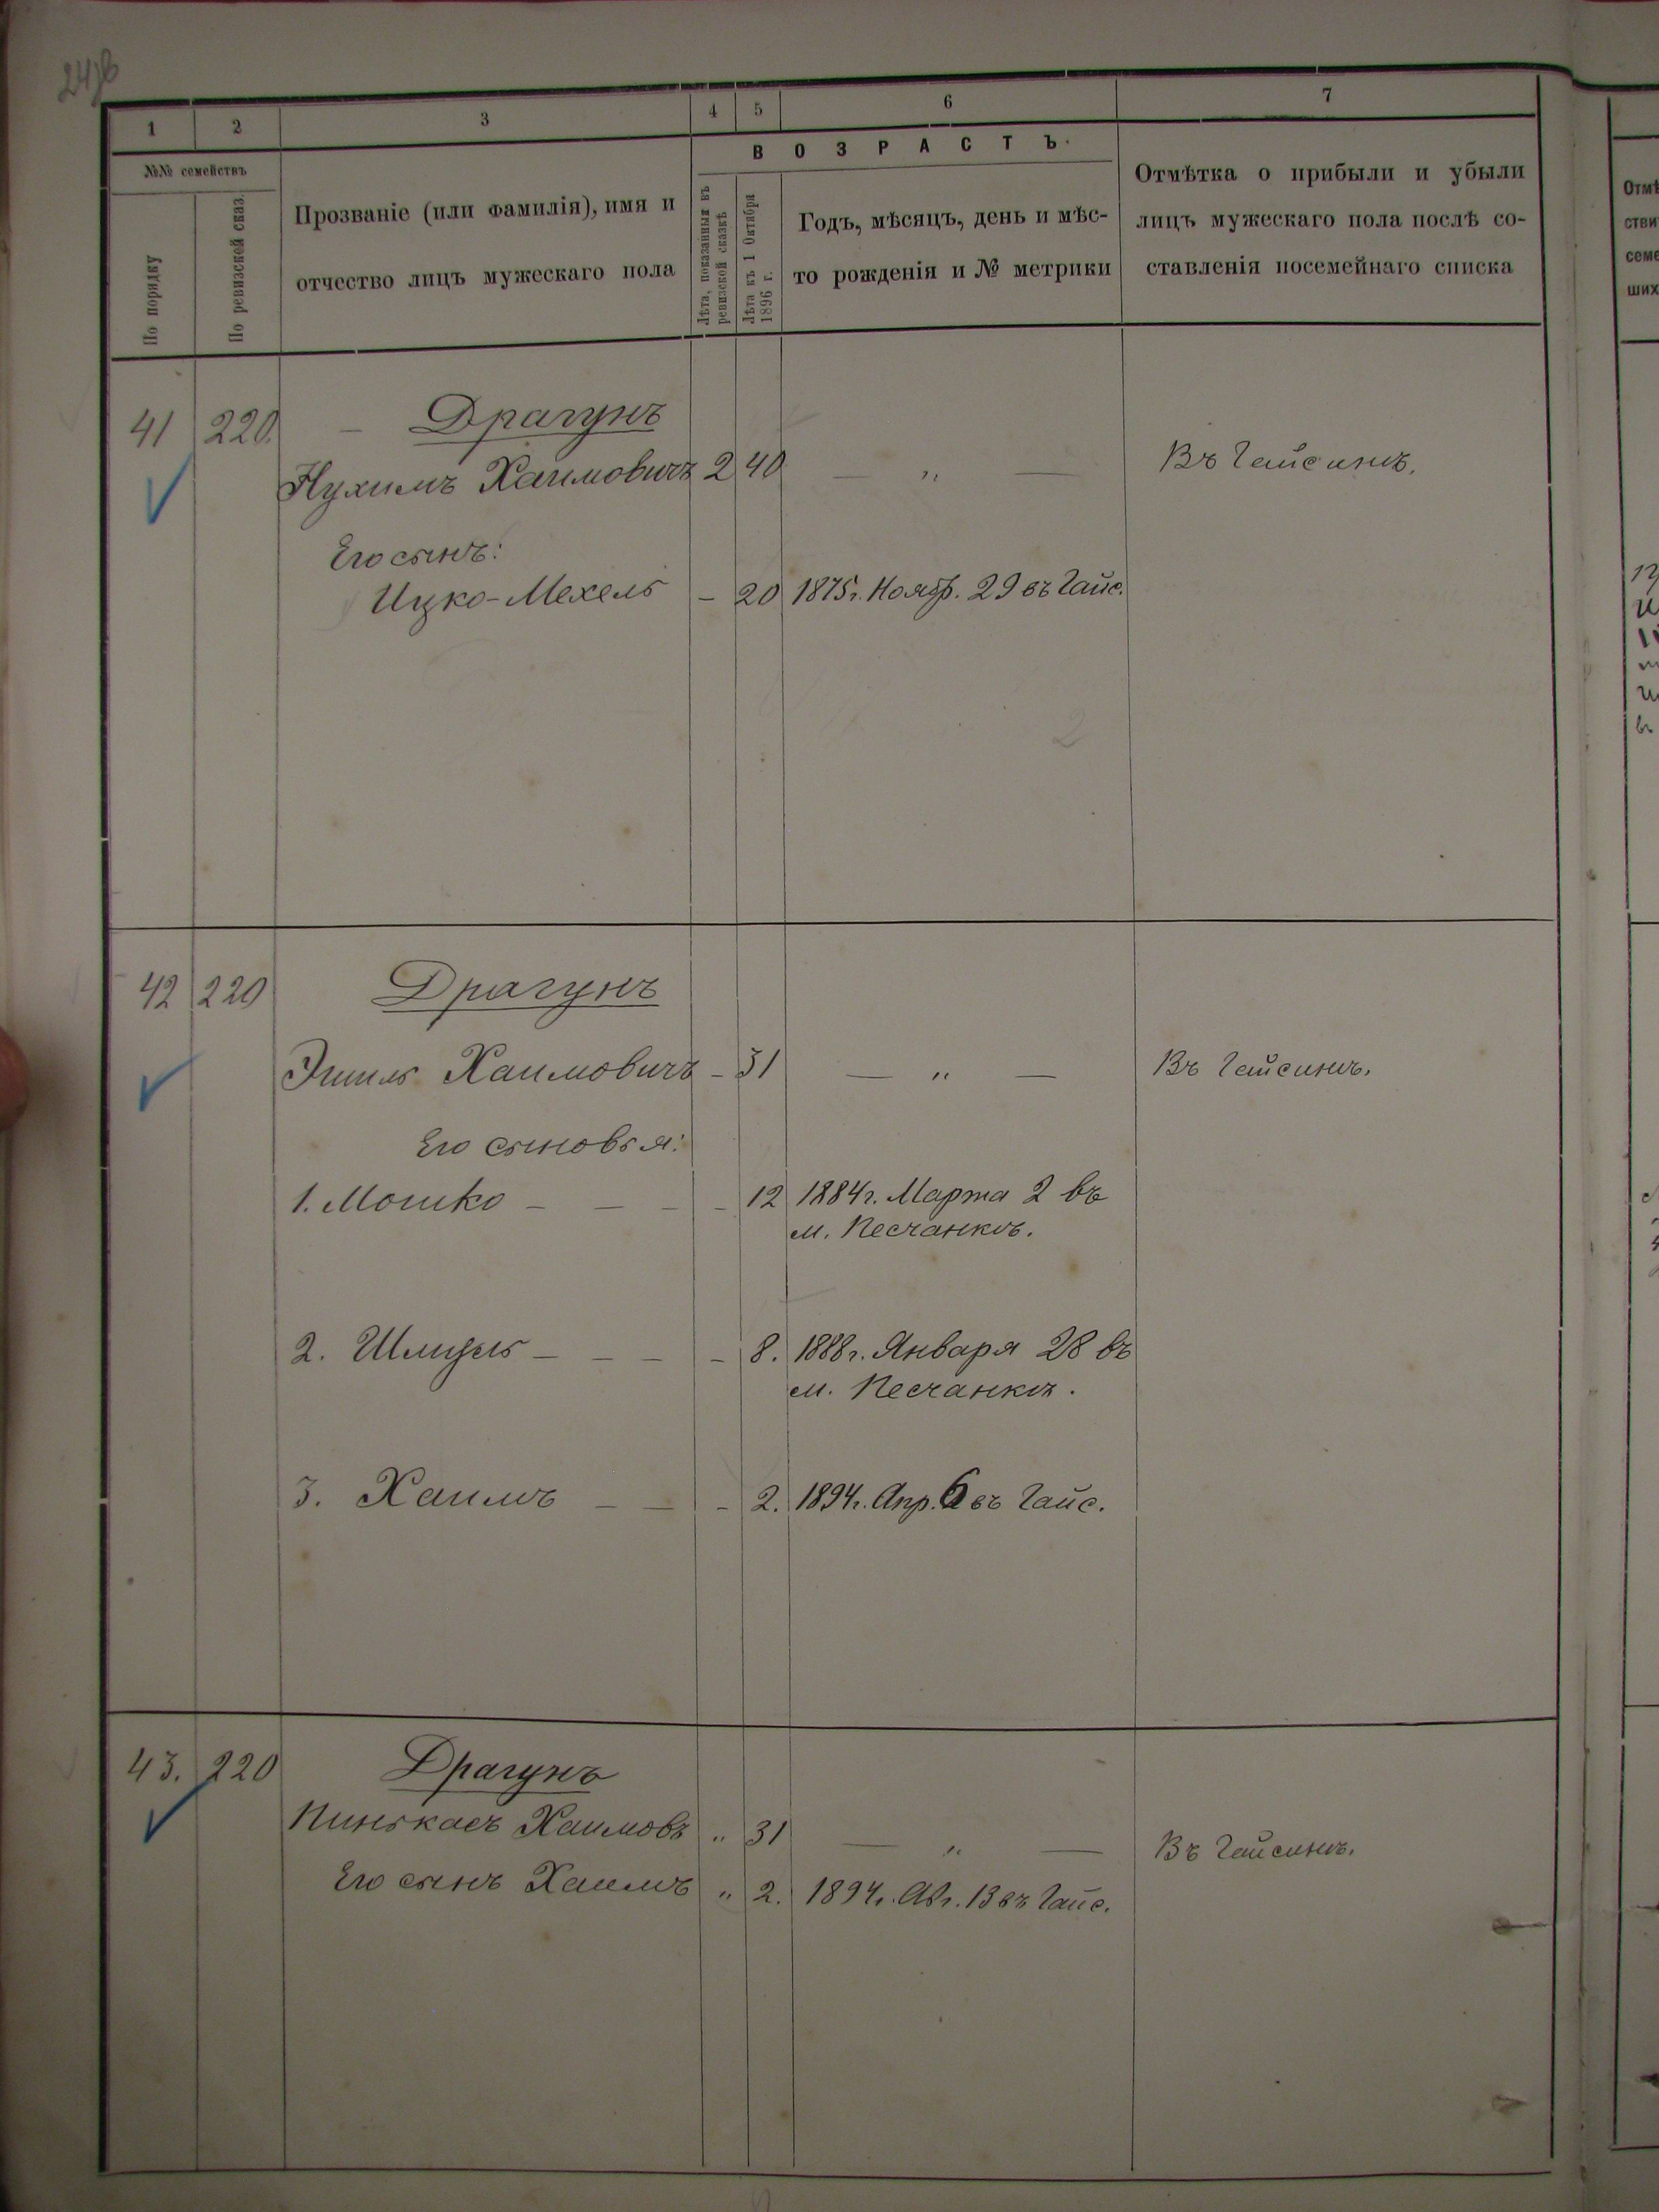 1 2 3 4 5 6 7
№№ семействъ
По порядку
По ревизской сказ.
Прозваніе (или фамилія), имя и
отчество лицъ мужескаго пола
ВОЗРАСТЪ.
Лѣта, показанныя въ
ревизской сказкѣ
Лѣта къ 1 Октября
1896 г.
Годъ, мѣсяцъ, день и мѣс-
то рожденія и № метрики
Отмѣтка о прибыли и убыли
лицъ мужескаго пола послѣ со-
ставленія посемейнаго списка
41 220. Драгунъ
Нухимъ Хаимовичъ 2 40 — „ — Въ Гайсинѣ.
Его сынъ:
Ицко-Мехель – 20 1875 г. Нояб. 29 въ Гайс.
42 220 Драгунъ
Эшиль Хаимовичъ – 31 — „ — Въ Гайсинѣ.
Его сыновья:
1. Мошко – – – – 12 1884 г. Марта 2 въ
м. Песчанкѣ.
2. – – – – 8. 1888 г. Января 28 въ
м. Песчанкѣ.
3. Хаимъ – – – 2. 1894 г. Апр. 6 въ Гайс.
43. 220 Драгунъ
Пинькасъ Хаимовъ „ 31 — „ — Въ Гайсинѣ.
Его сынъ Хаимъ „ 2. 1894 г. Авг. 13 въ Гайс.